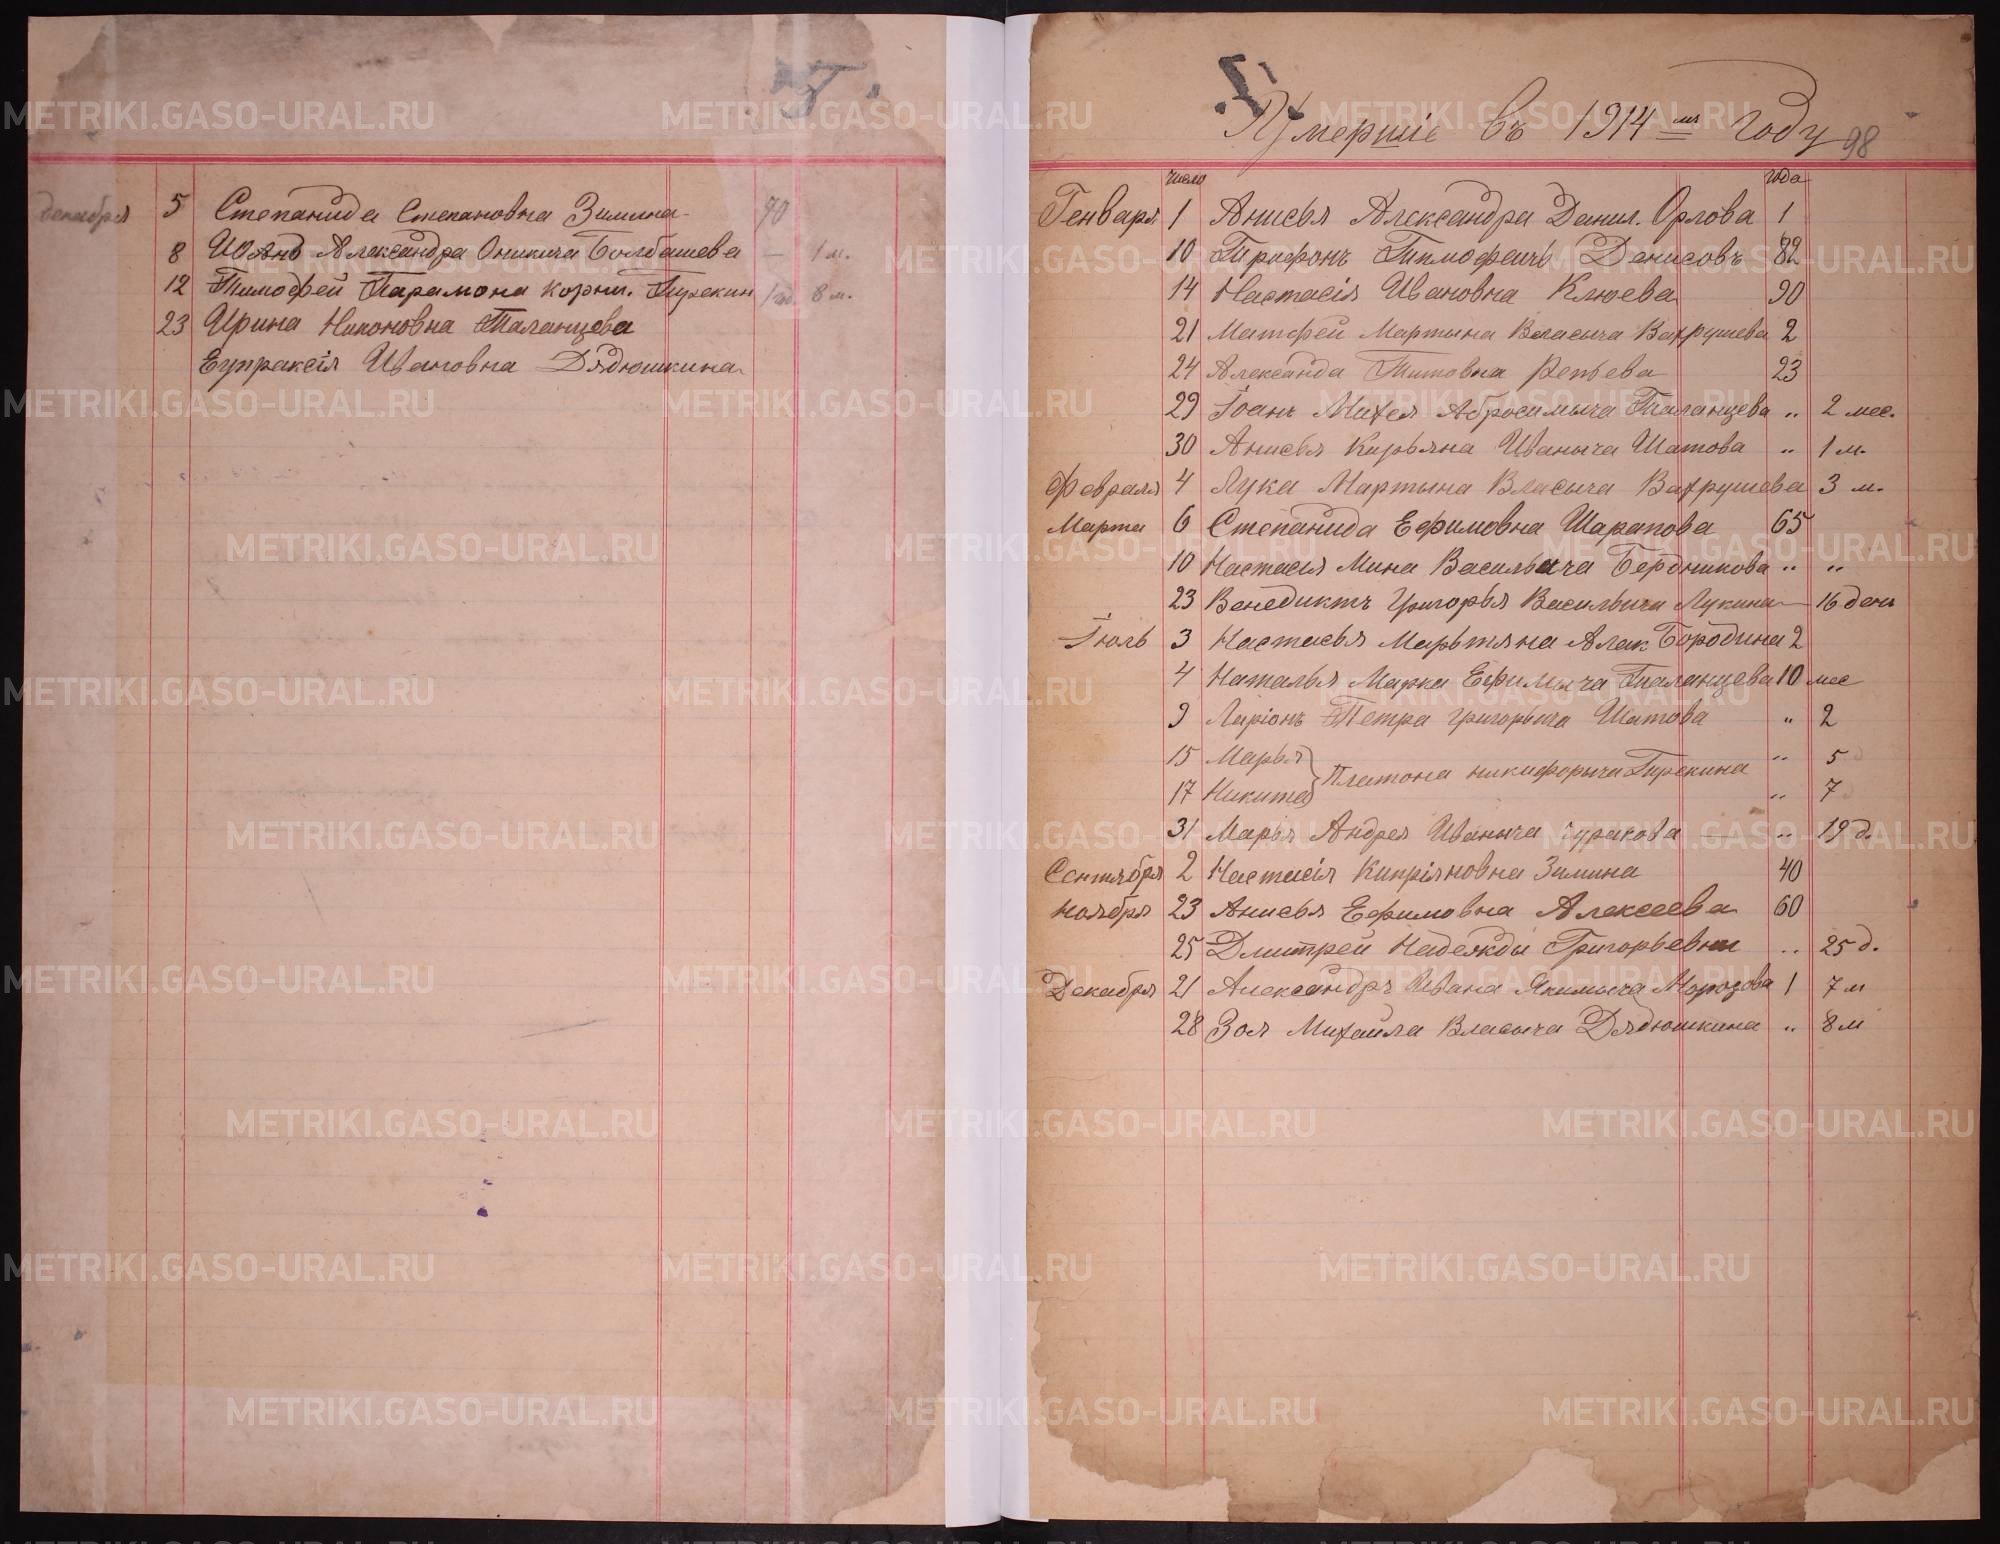 декабря 5 Степанида Степановна Зимина 70
8 Иоанъ Александра Оникича Болбашева — 1 м.
12 Тимофей Парамона Корни. Пурекин 1 год 8 м.
23 Ирина Никоновна Таланцова
Еупраксія Ивановна Дядюшкина
Умершіе въ 1914 мъ году 98
число года
Генваря 1 Анисья Александра Данил. Орлова 1
10 Трифонъ Тимофеичъ Денисовъ 82
14 Настасія Ивановна Клюева 90
21 Матфей Мартына Власыча Вахрушева 2
24 Александа Титовна Репьева 23
29 Іоанъ Михея Абросимыча Таланцева „ 2 мес.
30 Анисья Кирьяна Иваныча Шатова „ 1 м.
Февраля 4 Лука Мартына Власыча Вахрушева 3 м.
Марта 6 Степанида Ефимовна Шарапова 65
10 Настасья Мина Васильича Бердникова „ „
23 Венедиктъ Григорья Васильича Лукина — 16 день
Іюль 3 Настасья Марьтяна Алек Бородина 2
4 Наталья Марка Ефимыча Таланцева 10 мес
9 Ларіонъ Петра Григорьича Шатова „ 2
15 Марья „ 5
Платона никифорыча Пурекина
17 Никита „ 7
31 Марья Андрея Иваныча Чуракова — „ 19 д.
Сентября 2 Настасія Кипріяновна Зимина 40
Ноября 23 Анисья Ефимовна Алексеева 60
25 Дмитрей Надежды Григорьевны „ 25 д.
Декабря 21 Александръ Ивана Якимыча Морозова 1 7 м
28 Зоя Михаила Власыча Дядюшкина „ 8 м
METRIKI.GASO-URAL.RU